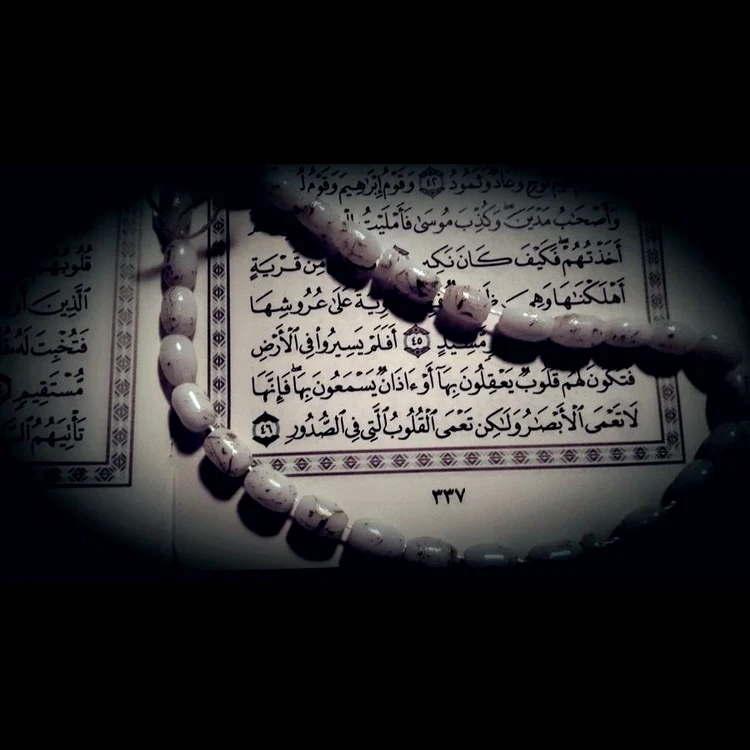 نُوحٍ وَعَادٌ وَثَمُودُ ٤٢ وَقَوْمُ إِبْرَٰهِيمَ وَقَوْمُ
وَأَصْحَٰبُ مَدْيَنَ وَكُذِّبَ مُوسَىٰ فَأَمْلَيْتُ
أَخَذْتُهُمْ فَكَيْفَ كَانَ مِّن قَرْيَةٍ
أَهْلَكْنَٰهَا عَلَىٰ عُرُوشِهَا
مَّشِيدٍ ٤٥ أَفَلَمْ يَسِيرُوا۟ فِي ٱلْأَرْضِ
فَتَكُونَ لَهُمْ قُلُوبٌ يَعْقِلُونَ بِهَآ أَوْ ءَاذَانٌ يَسْمَعُونَ بِهَا فَإِنَّهَا
لَا تَعْمَى ٱلْأَبْصَٰرُ وَلَٰكِن تَعْمَى ٱلْقُلُوبُ ٱلَّتِي فِي ٱلصُّدُورِ ٤٦
٣٣٧
ٱلَّذِينَ
فَتُخْبِتَ لَهُۥ
مُّسْتَقِيمٍ
تَأْتِيَهُمُ